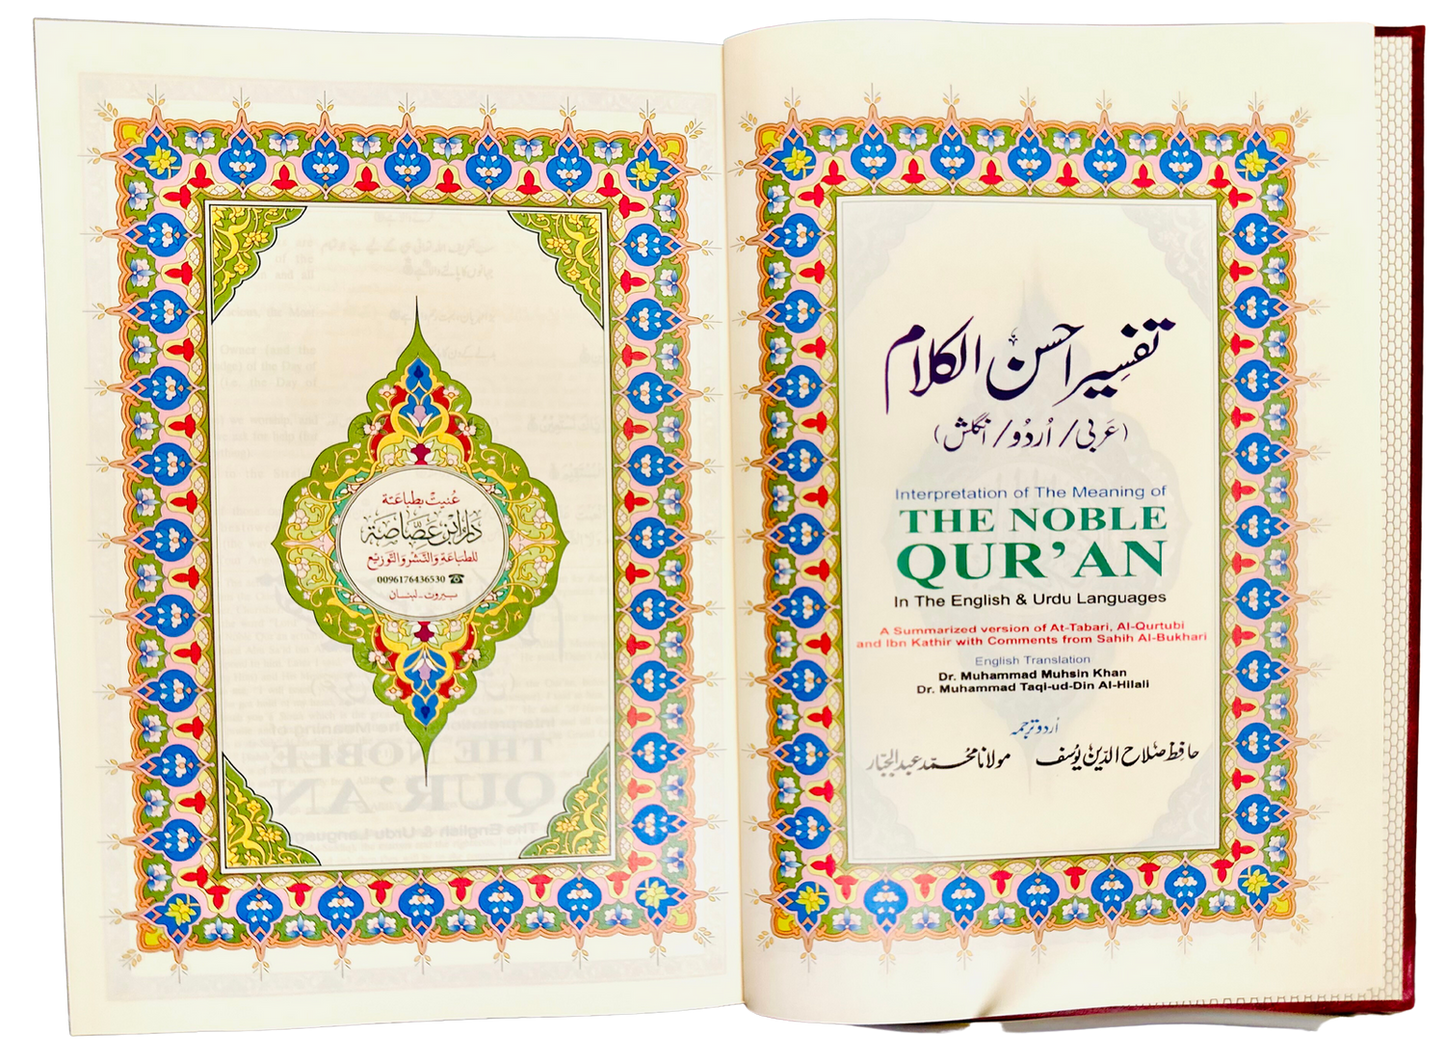 عُنيتْ بطباعَتَة
دار ابن عصّاصة
للطباعَةِ وَالنَّشرِ وَالتَّوزيْع
0096176436530 ☎
بيروت - لبنان
تفسیر احسن الکلام
(عَربی/ اُردُو/ انگلش)
Interpretation of The Meaning of
THE NOBLE
QUR'AN
In The English & Urdu Languages
A Summarized version of At-Tabari, Al-Qurtubi
and Ibn Kathir with Comments from Sahih Al-Bukhari
English Translation
Dr. Muhammad Muhsin Khan
Dr. Muhammad Taqi-ud-Din Al-Hilali
اُردو ترجمہ
حافظ صلاح الدّین یُوسف مولانا محمّد عبد الجبّار